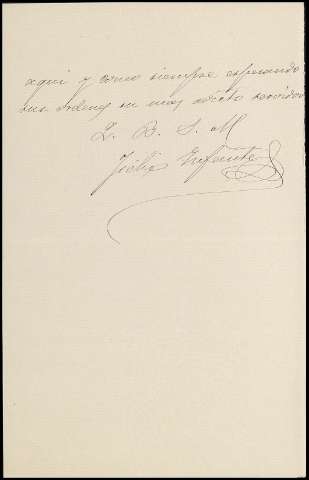 aqui y como siempre esperando
sus ordenes su mas adicto servidor
Q. B. S. M
Felix Infante